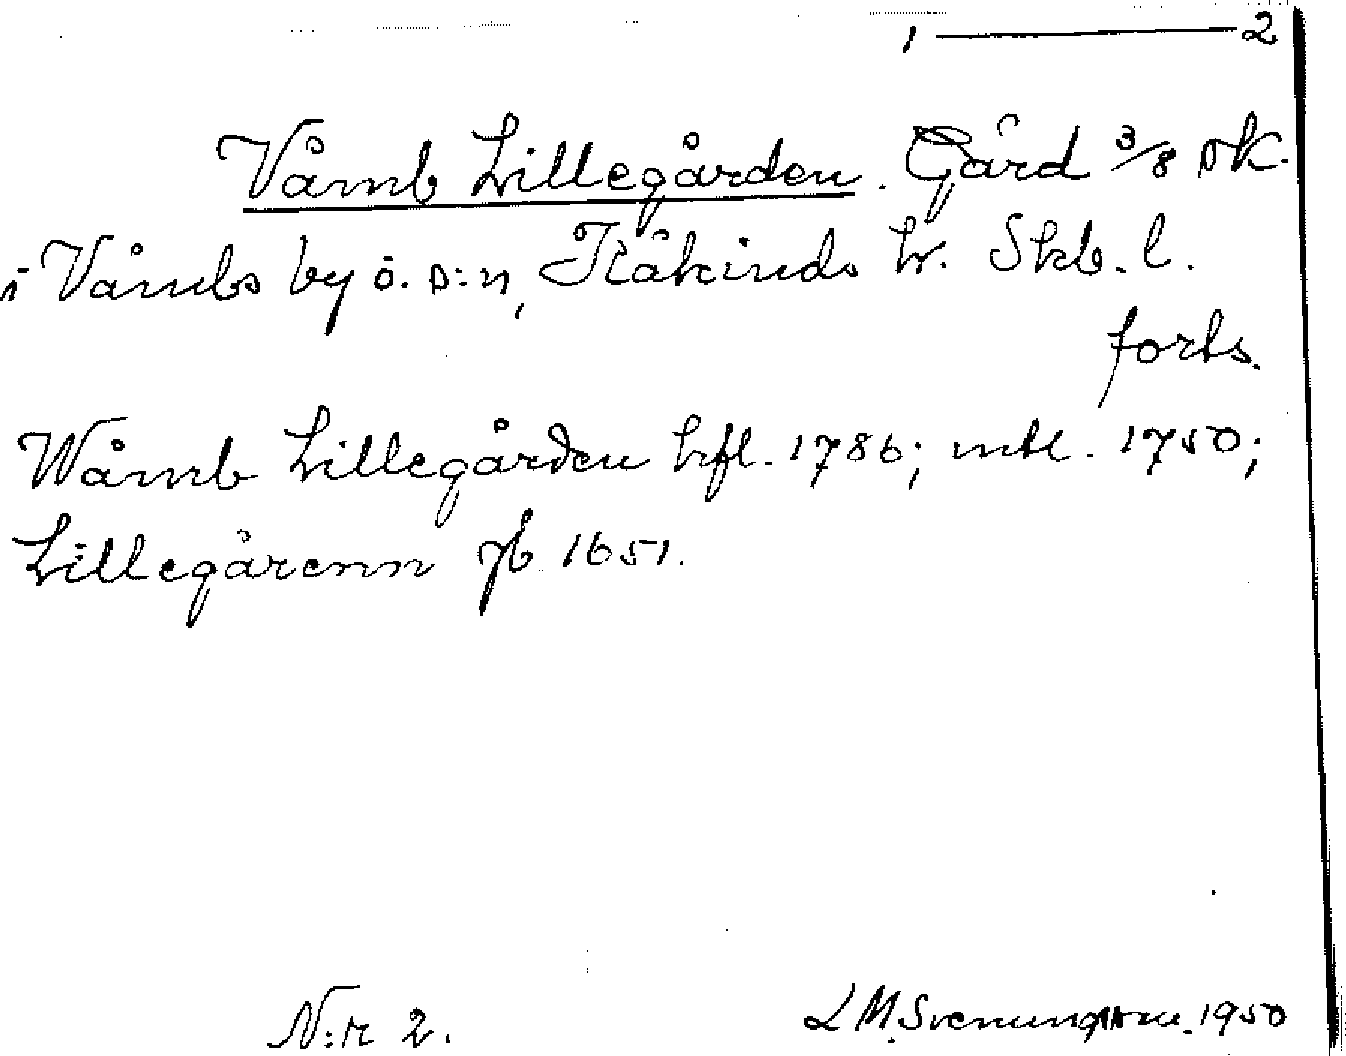 1 — 2
Våmb Lillegården. Gård 3/8 sk.
i Våmbs by o. s:n, Kåkinds hr. Skb. l.
forts.
Wåmb Lillegården hfl. 1786; mtl. 1750;
Lillegårenn jb 1651.
N:r 2. L M Svenungsson. 1950